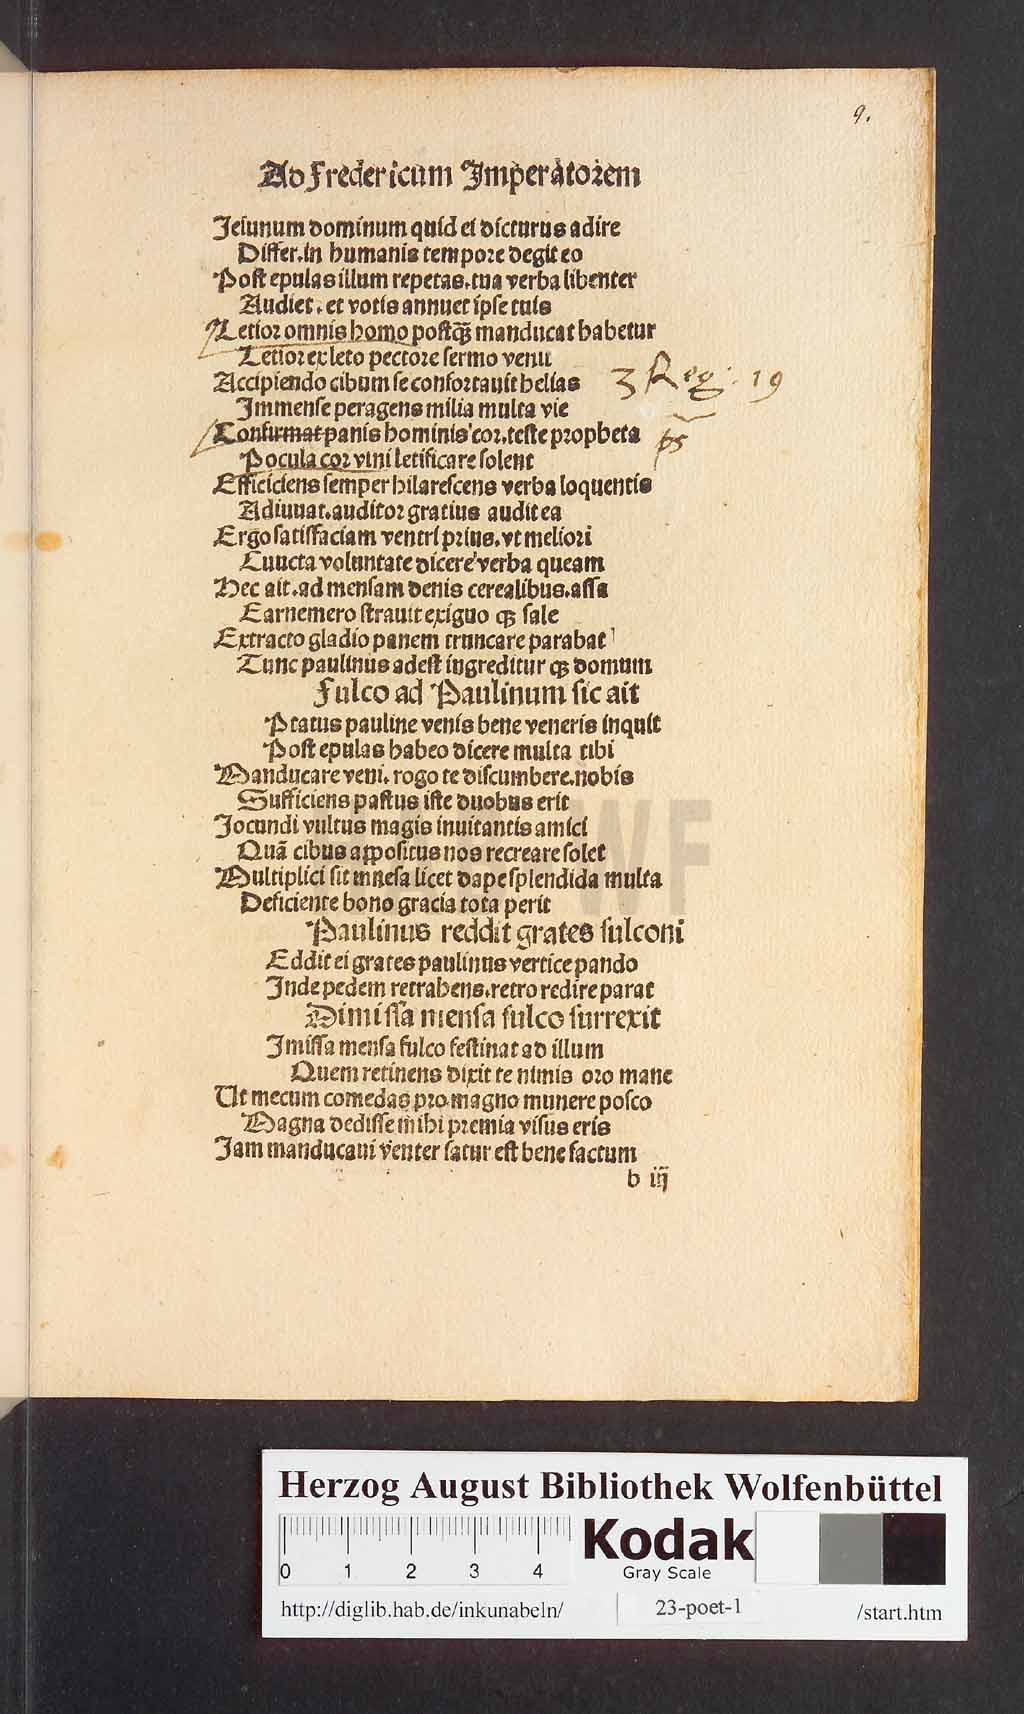 9.
Ad fredericum Imperatorem
Jeiunum dominum quid ei dicturus adire
Differ. in humanis tempore degit eo
Post epulas illum repetas. tua verba libenter
Audiet. et votis annuet ipse tuis
Letior omnis homo postqꝫ manducat habetur
Letior ex leto pectore sermo venit
Accipiendo cibum se confortauit helias 3 Reg. 19
Immense peragens milia multa vie
Confirmat panis hominis cor. teste propheta ps
Pocula cor vini letificare solent
Efficiciens semper hilarescens verba loquentis
Adiuuat. auditor gratius audit ea
Ergo satisfaciam ventri prius. vt meliori
Cuncta voluntate dicere verba queam
Hec ait. ad mensam denis cerealibus. assa
Carnem ero strauit exiguo qꝫ sale
Extracto gladio panem truncare parabat
Tunc paulinus adest ingreditur qꝫ domum
Fulco ad Paulinum sic ait
Ptatus pauline venis bene veneris inquit
Post epulas habeo dicere multa tibi
Manducare veni. rogo te discumbere. nobis
Sufficiens pastus iste duobus erit
Jocundi vultus magis inuitantis amici
Quā cibus appositus nos recreare solet
Multiplici sit mnesa licet dape splendida multa
Deficiente bono gracia tota perit
Paulinus reddit grates fulconi
Eddit ei grates paulinus vertice pando
Inde pedem retrahens. retro redire parat
Dimissa mensa fulco surrexit
Imissa mensa fulco festinat ad illum
Quem retinens dixit te nimis oro mane
Ut mecum comedas pro magno munere posco
Magna dedisse mihi premia visus eris
Jam manducaui venter satur est bene factum
b iij
HAB WF
Herzog August Bibliothek Wolfenbüttel
0 1 2 3 4
Kodak
Gray Scale
http://diglib.hab.de/inkunabeln/ 23-poet-1 /start.htm